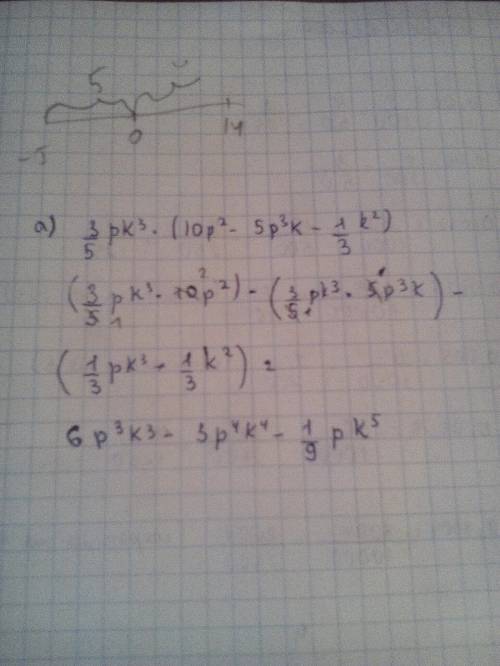 5
-5 0 14
a) 3/5 pk³ · (10p² - 5p³k - 1/3 k²)
(3/5 pk³ · 10p²) - (3/5 pk³ · 5p³k) -
(1/3 pk³ · 1/3 k²) =
6p³k3 - 3p⁴k⁴ - 1/9 pk⁵